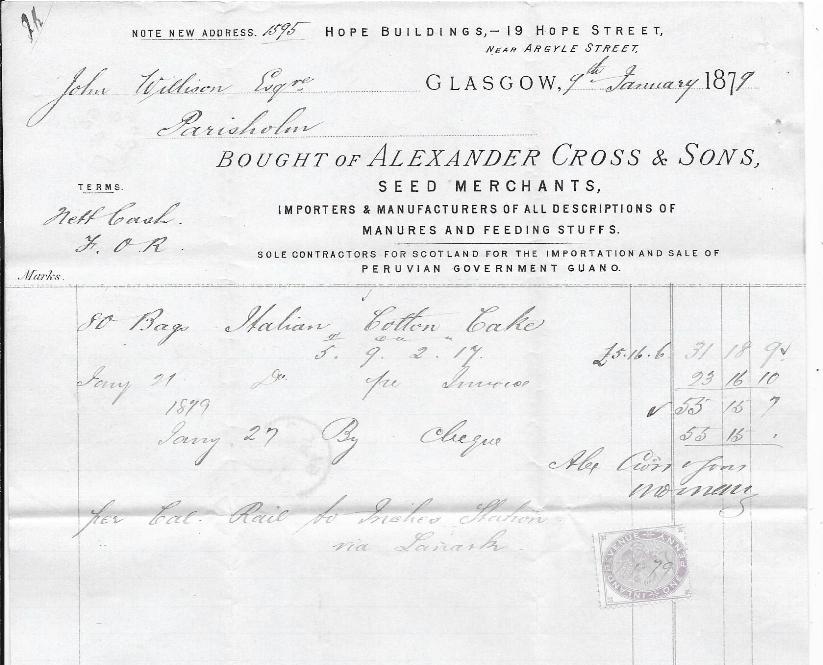 NOTE NEW ADDRESS. 1595 HOPE BUILDINGS,-19 HOPE STREET,
NEAR ARGYLE STREET,
GLASGOW, 9th January 1879
John Willison Esqre
Parisholm
BOUGHT OF ALEXANDER CROSS & SONS,
SEED MERCHANTS,
TERMS.
Nett Cash.
F. O. R.
IMPORTERS & MANUFACTURERS OF ALL DESCRIPTIONS OF
MANURES AND FEEDING STUFFS.
SOLE CONTRACTORS FOR SCOTLAND FOR THE IMPORTATION AND SALE OF
PERUVIAN GOVERNMENT GUANO.
Marks.
80 Bags Italian Cotton Cake
5. 9. 2. 17. £5.16.6 31 18 9
Jany 21 Do per Invoice 23 16 10
1879 55 15 7
Jany 27 By Cheque 55 15 .
Alex Cross & Sons
per Cal. Rail to Inches Station
via Lanark.
INLAND REVENUE ONE PENNY
79